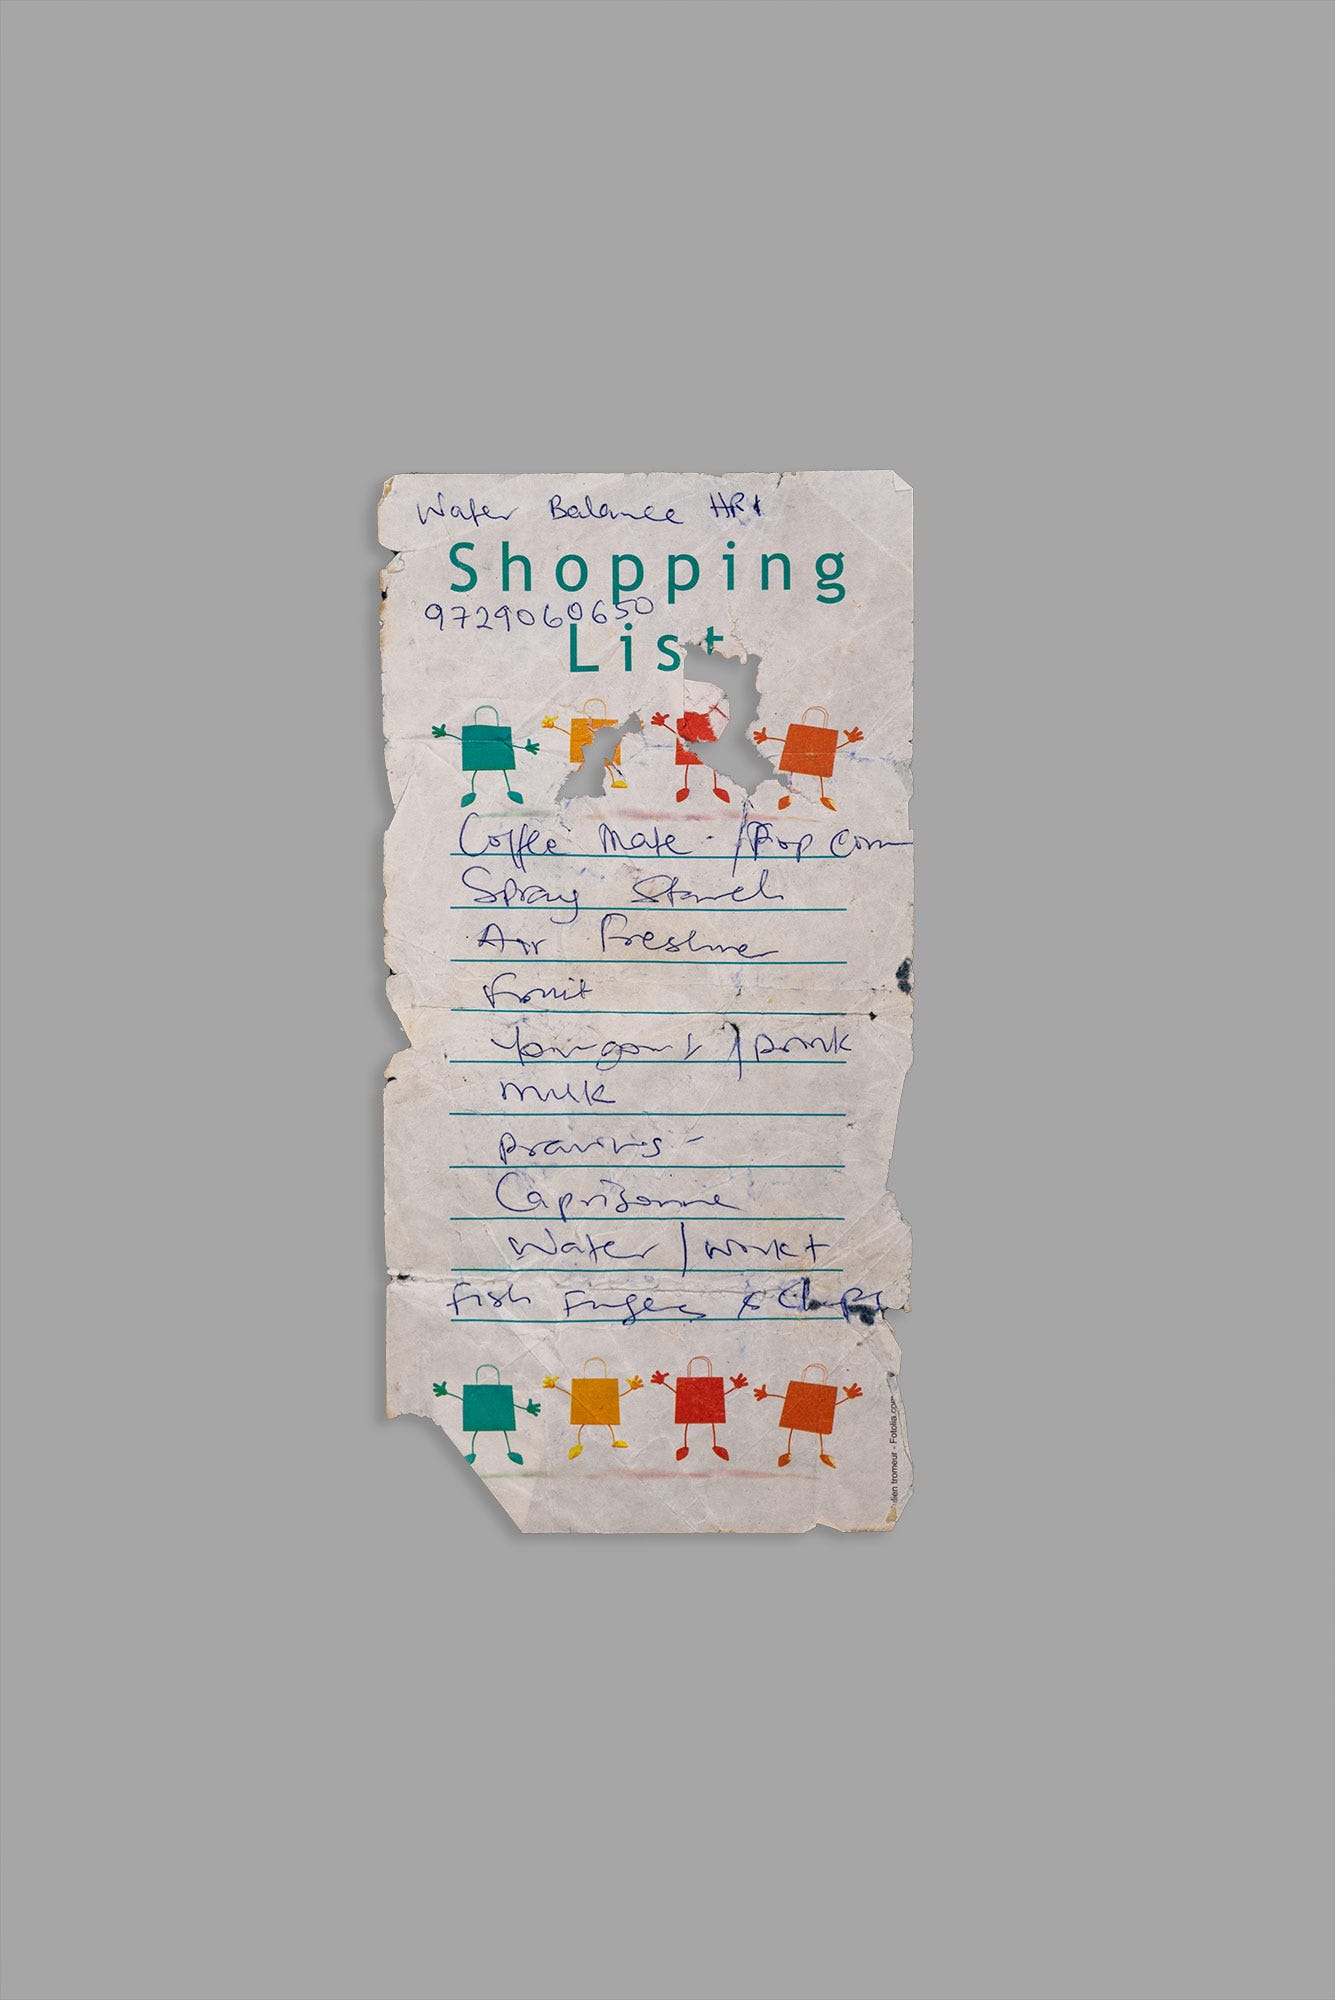 Water Balance
Shopping
9729060650
List
Coffee Mate - / Pop Corn
Spray Starch
Air Freshner
Fruit
Yourgourt /
Milk
Prawns -
Caprisonne
Water /
Fish Fingers & Chips
lien tromeur - Fotolia.com